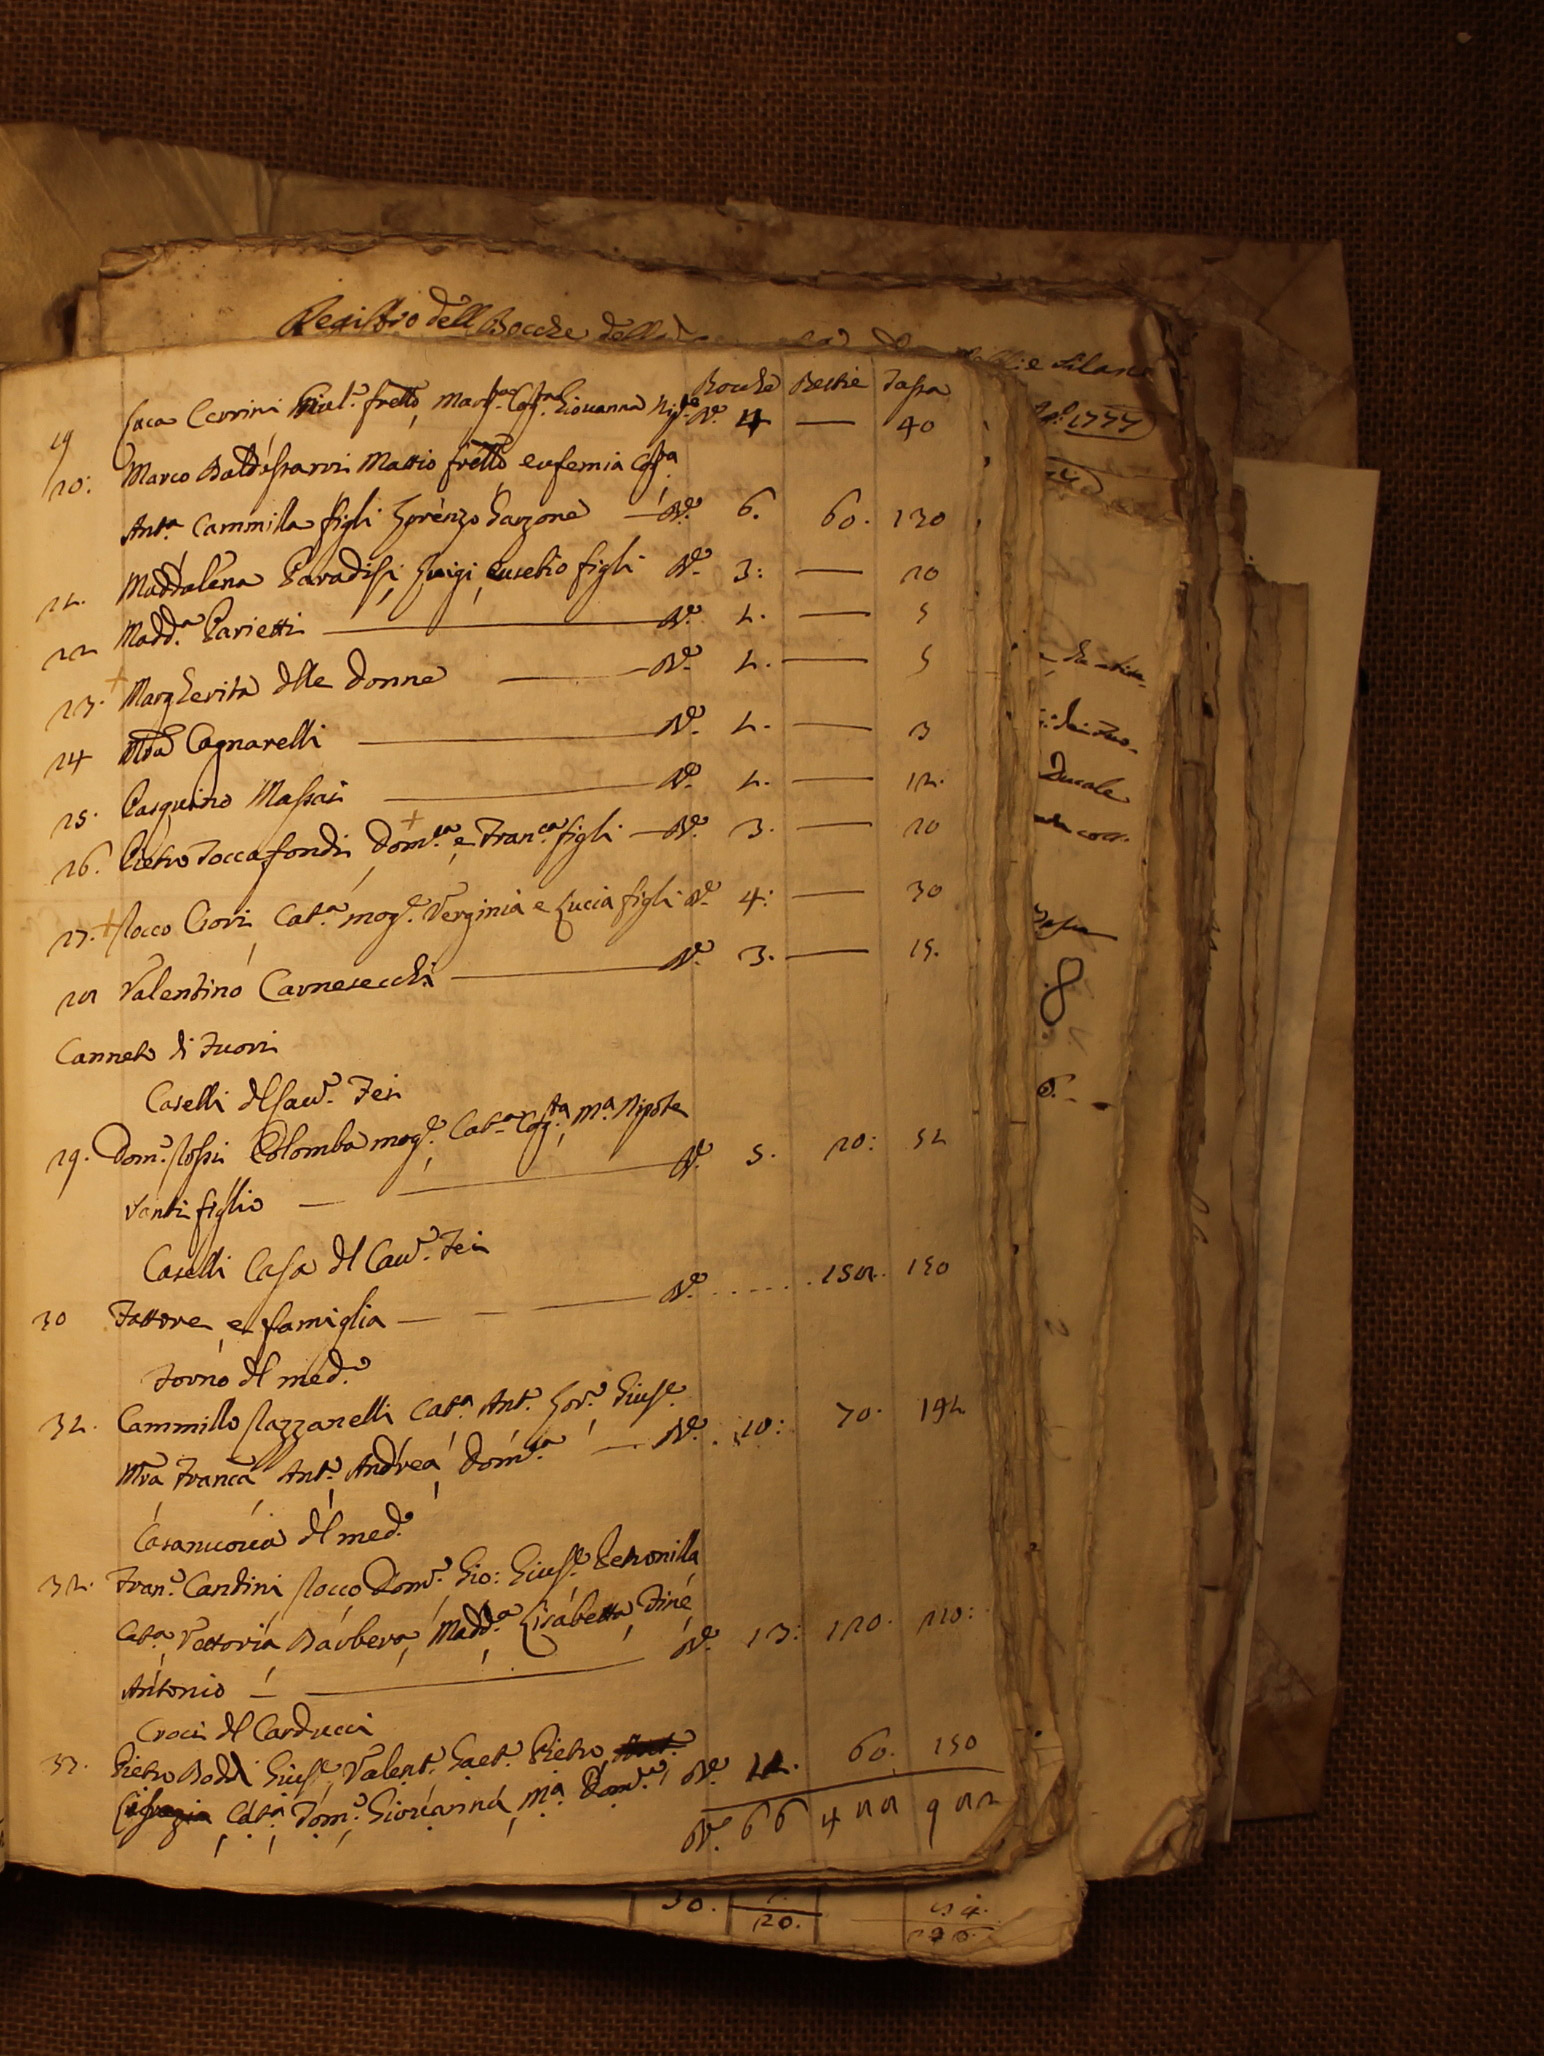 Registro dell Bocche della
1777
Bocche Bestie Tassa
19 Luca Cerrini Giul.º fretto, Marg.ª Cog.ª Giovanna Nip.e N.º 4 — 40
20: Marco Baldesparri Mattio fretto eufemia Cog.ª
Ant.ª Cammilla figli Lorenzo Garzone — N.º 6. 60. 120
21. Maddalena Paradisi, Luigi, Eusebio figli N.º 3: — 20
22 Madd.ª Parietti — N.º 1. — 5
23. + Margherita dlle Donne — N.º 1. — 5
24 Mra Cagnarelli — N.º 1. — 3
25. Pasquino Massai — N.º 1. — 12.
26. Pietro Toccafondi, Dom.ca e Fran.ca figli — N.º 3. — 20
27. + Rocco Cori Cat.ª mog.e Verginia e Lucia figli N.º 4: — 30
28 Valentino Carnesecchi — N.º 3. — 15.
Canneto di Fuori
Caselli dl Cav.r Fei
29. Dom.º Rossi Colomba mog.e, Cat.ª Cog.ta, M.ª Nipote
Santi figlio — N.º 5. 20: 51
Caselli Casa dl Cav.r Fei
30 Fattore e famiglia — N.º ..... 158. 150
Forno dl med.º
31. Cammillo Razzanelli Cat.ª Ant.º Lor.º Gius.e
Mra Franca Ant.º Andrea Dom.ca — N.º 10: 70. 191
Casanuova dl med.º
32. Fran.º Cantini Rocco Dom.º Gio: Gius.e Petronilla
Cat.ª Vettoria Barbera, Madd.ª Lisabetta, Finè
Antonio — N.º 13: 120. 210:
Croci dl Carducci
33. Pietro Boddi Gius.e Valent.º Gaet.º Pietro
Cat.ª Dom.º Giovanna, M.ª Dom.ca N.º 12. 60. 150
N.º 66 488 982
Ducale
30. 20.